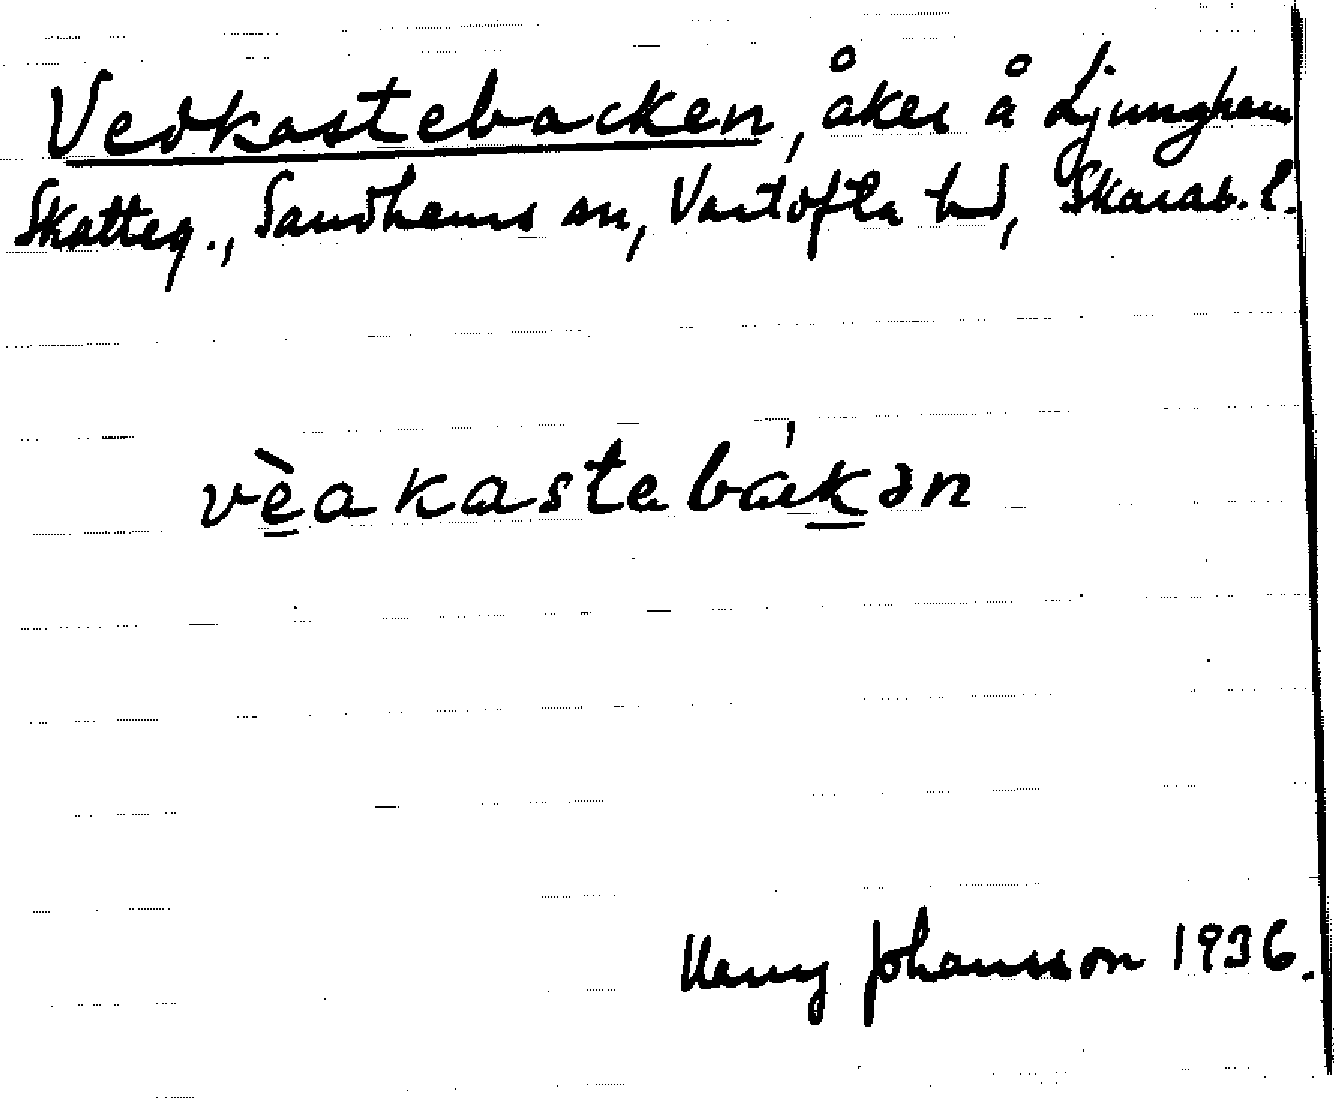 Vedkastebacken, åker å Ljunghem
Skatteg., Sandhems sn, Vartofta hd, Skarab. l.
vèakastebák̲ən
Harry Johansson 1936.